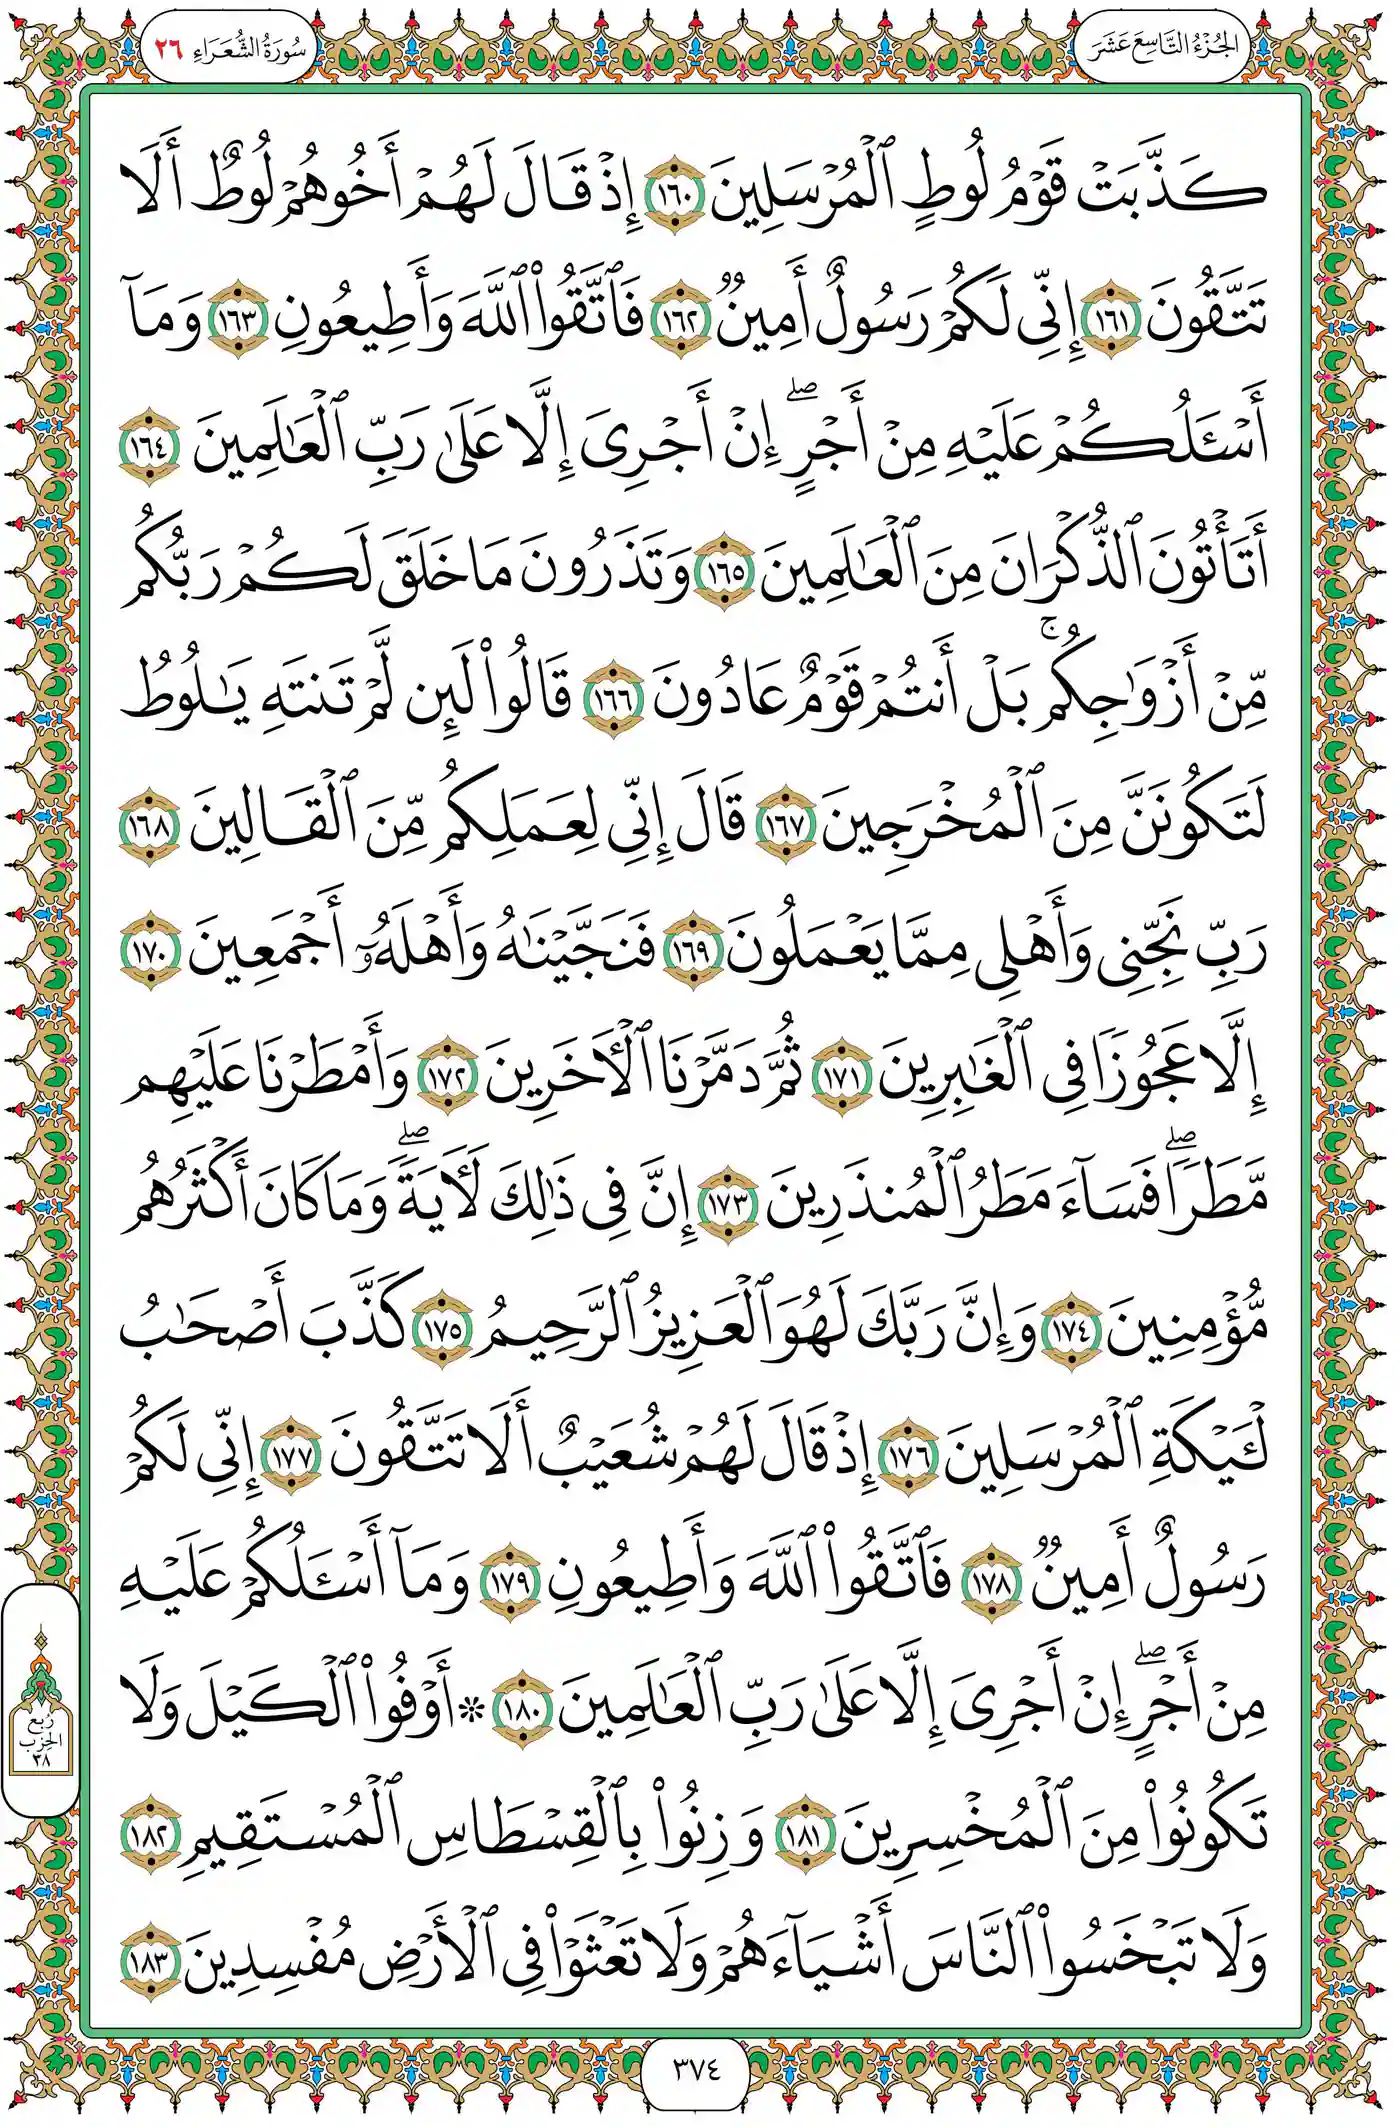 الجُزْءُ التَّاسِعَ عَشَرَ
سُورَةُ الشُّعَرَاءِ ٢٦
كَذَّبَتْ قَوْمُ لُوطٍ ٱلْمُرْسَلِينَ ١٦٠ إِذْ قَالَ لَهُمْ أَخُوهُمْ لُوطٌ أَلَا
تَتَّقُونَ ١٦١ إِنِّى لَكُمْ رَسُولٌ أَمِينٌ ١٦٢ فَٱتَّقُوا۟ ٱللَّهَ وَأَطِيعُونِ ١٦٣ وَمَآ
أَسْـَٔلُكُمْ عَلَيْهِ مِنْ أَجْرٍ ۖ إِنْ أَجْرِىَ إِلَّا عَلَىٰ رَبِّ ٱلْعَـٰلَمِينَ ١٦٤
أَتَأْتُونَ ٱلذُّكْرَانَ مِنَ ٱلْعَـٰلَمِينَ ١٦٥ وَتَذَرُونَ مَا خَلَقَ لَكُمْ رَبُّكُم
مِّنْ أَزْوَٰجِكُم ۚ بَلْ أَنتُمْ قَوْمٌ عَادُونَ ١٦٦ قَالُوا۟ لَئِن لَّمْ تَنتَهِ يَـٰلُوطُ
لَتَكُونَنَّ مِنَ ٱلْمُخْرَجِينَ ١٦٧ قَالَ إِنِّى لِعَمَلِكُم مِّنَ ٱلْقَالِينَ ١٦٨
رَبِّ نَجِّنِى وَأَهْلِى مِمَّا يَعْمَلُونَ ١٦٩ فَنَجَّيْنَـٰهُ وَأَهْلَهُۥٓ أَجْمَعِينَ ١٧٠
إِلَّا عَجُوزًا فِى ٱلْغَـٰبِرِينَ ١٧١ ثُمَّ دَمَّرْنَا ٱلْـَٔاخَرِينَ ١٧٢ وَأَمْطَرْنَا عَلَيْهِم
مَّطَرًا ۖ فَسَآءَ مَطَرُ ٱلْمُنذَرِينَ ١٧٣ إِنَّ فِى ذَٰلِكَ لَـَٔايَةً ۖ وَمَا كَانَ أَكْثَرُهُم
مُّؤْمِنِينَ ١٧٤ وَإِنَّ رَبَّكَ لَهُوَ ٱلْعَزِيزُ ٱلرَّحِيمُ ١٧٥ كَذَّبَ أَصْحَـٰبُ
لْـَٔيْكَةِ ٱلْمُرْسَلِينَ ١٧٦ إِذْ قَالَ لَهُمْ شُعَيْبٌ أَلَا تَتَّقُونَ ١٧٧ إِنِّى لَكُمْ
رَسُولٌ أَمِينٌ ١٧٨ فَٱتَّقُوا۟ ٱللَّهَ وَأَطِيعُونِ ١٧٩ وَمَآ أَسْـَٔلُكُمْ عَلَيْهِ
مِنْ أَجْرٍ ۖ إِنْ أَجْرِىَ إِلَّا عَلَىٰ رَبِّ ٱلْعَـٰلَمِينَ ١٨٠ * أَوْفُوا۟ ٱلْكَيْلَ وَلَا
تَكُونُوا۟ مِنَ ٱلْمُخْسِرِينَ ١٨١ وَزِنُوا۟ بِٱلْقِسْطَاسِ ٱلْمُسْتَقِيمِ ١٨٢
وَلَا تَبْخَسُوا۟ ٱلنَّاسَ أَشْيَآءَهُمْ وَلَا تَعْثَوْا۟ فِى ٱلْأَرْضِ مُفْسِدِينَ ١٨٣
رُبع
الحِزب
٣٨
٣٧٤